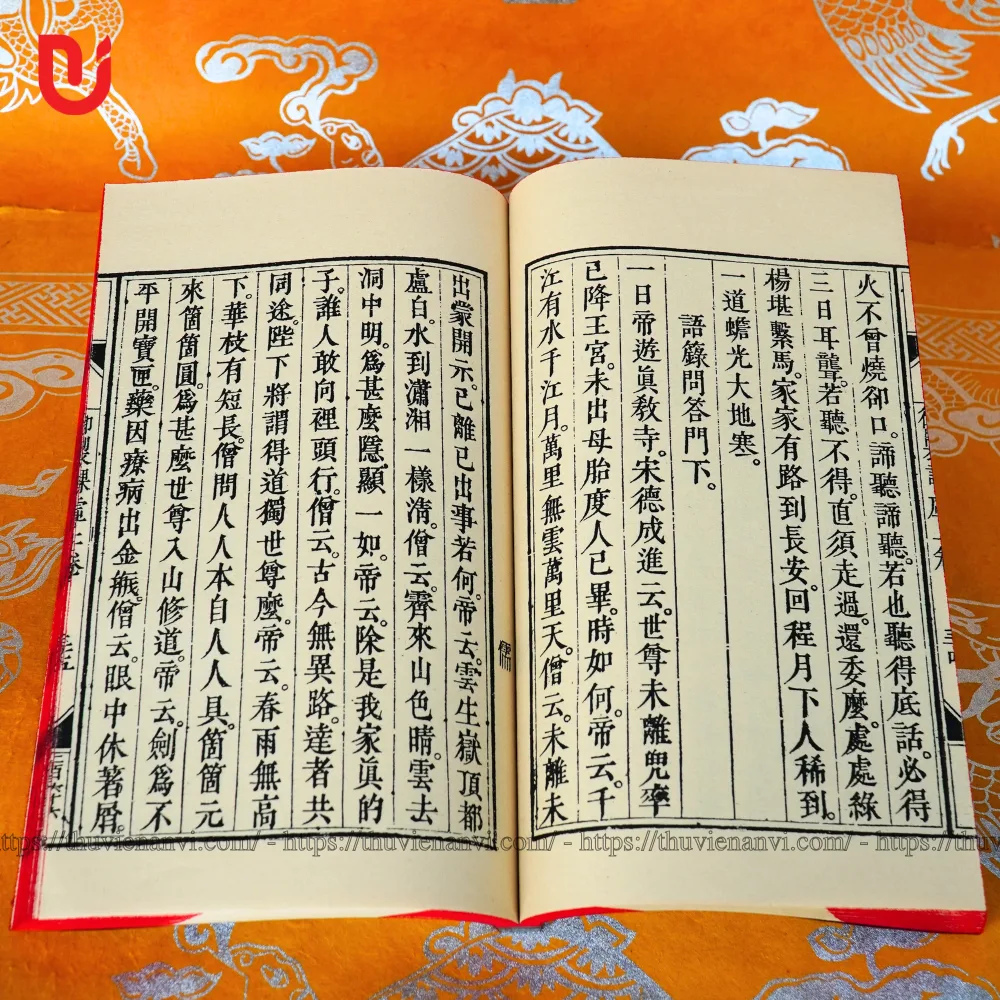 火不曾燒卻口。諦聽諦聽。若也聽得底話。必得
三日耳聾。若聽不得。直須走過。還委麼。處處綠
楊堪繫馬。家家有路到長安。回程月下人稀到。
一道蟾光大地寒。
語籙問答門下。
一日帝遊眞敎寺。宋德成進云。世尊未離兜率
已降王宮。未出母胎度人已畢。時如何。帝云。千
江有水千江月。萬里無雲萬里天。僧云。未離未
出蒙開示。已離已出事若何。帝云。雲生嶽頂都
盧白。水到瀟湘一樣清。僧云。霽來山色晴。雲去
洞中明。爲甚麼隱顯一如。帝云。除是我家眞的
子。誰人敢向裡頭行。僧云。古今無異路。達者共
同途。陛下將謂得道獨世尊麼。帝云。春雨無高
下。華枝有短長。僧問。人人本自人人具。箇箇元
來箇圓。爲甚麼世尊入山修道。帝云。劍爲不
平開寶匣。藥因療病出金甁。僧云。眼中休著屑。
https://thuvienanvi.com/ - https://thuvienanvi.com/ - https://thuvienanvi.com/ - https://thuvienanvi.com/